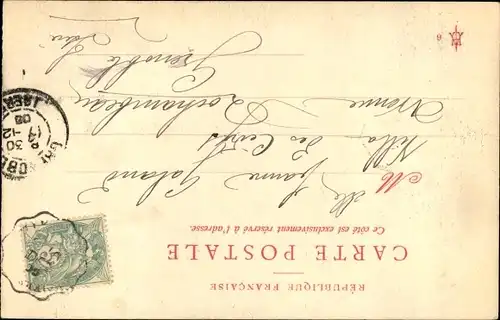 RÉPUBLIQUE FRANÇAISE
CARTE POSTALE
Ce côté est exclusivement réservé à l'adresse.
M lle Jeanne Galand
Villa des
Avenue Rochambeau
Grenoble Isère
6
8 30
14-12
ISERE